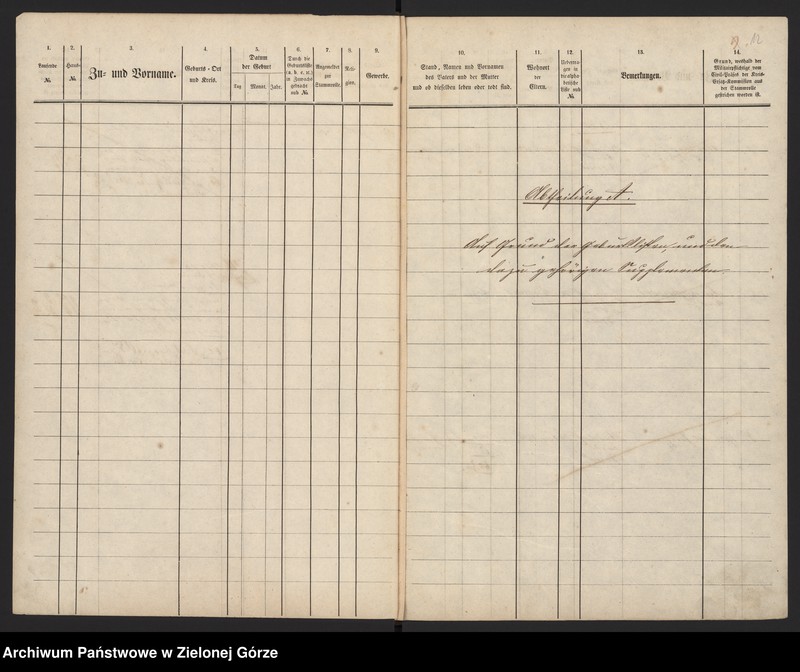 12
1.
laufende
№
2.
Haus-
№
3.
Zu- und Vorname.
4.
Geburts-Ort
und Kreis.
5.
Datum
der Geburt
Tag
Monat.
Jahr.
6.
Durch die
Geburtsliste
(a. b. c. ꝛc.)
in Zuwachs
gebracht
sub №
7.
Angemeldet
zur
Stammrolle.
8.
Reli-
gion.
9.
Gewerbe.
10.
Stand, Namen und Vornamen
des Vaters und der Mutter
und ob dieselben leben oder todt sind.
11.
Wohnort
der
Eltern.
12.
Uebertra-
gen in
die alpha-
betische
Liste sub
№
13.
Bemerkungen.
14.
Grund, weshalb der
Militairpflichtige vom
Civil-Präses der Kreis-
Ersatz-Kommission aus
der Stammrolle
gestrichen worden ist.
Abtheilung A.
Auf Grund der Geburtslisten, und den
dazu gehörigen Supplementen
Archiwum Państwowe w Zielonej Górze